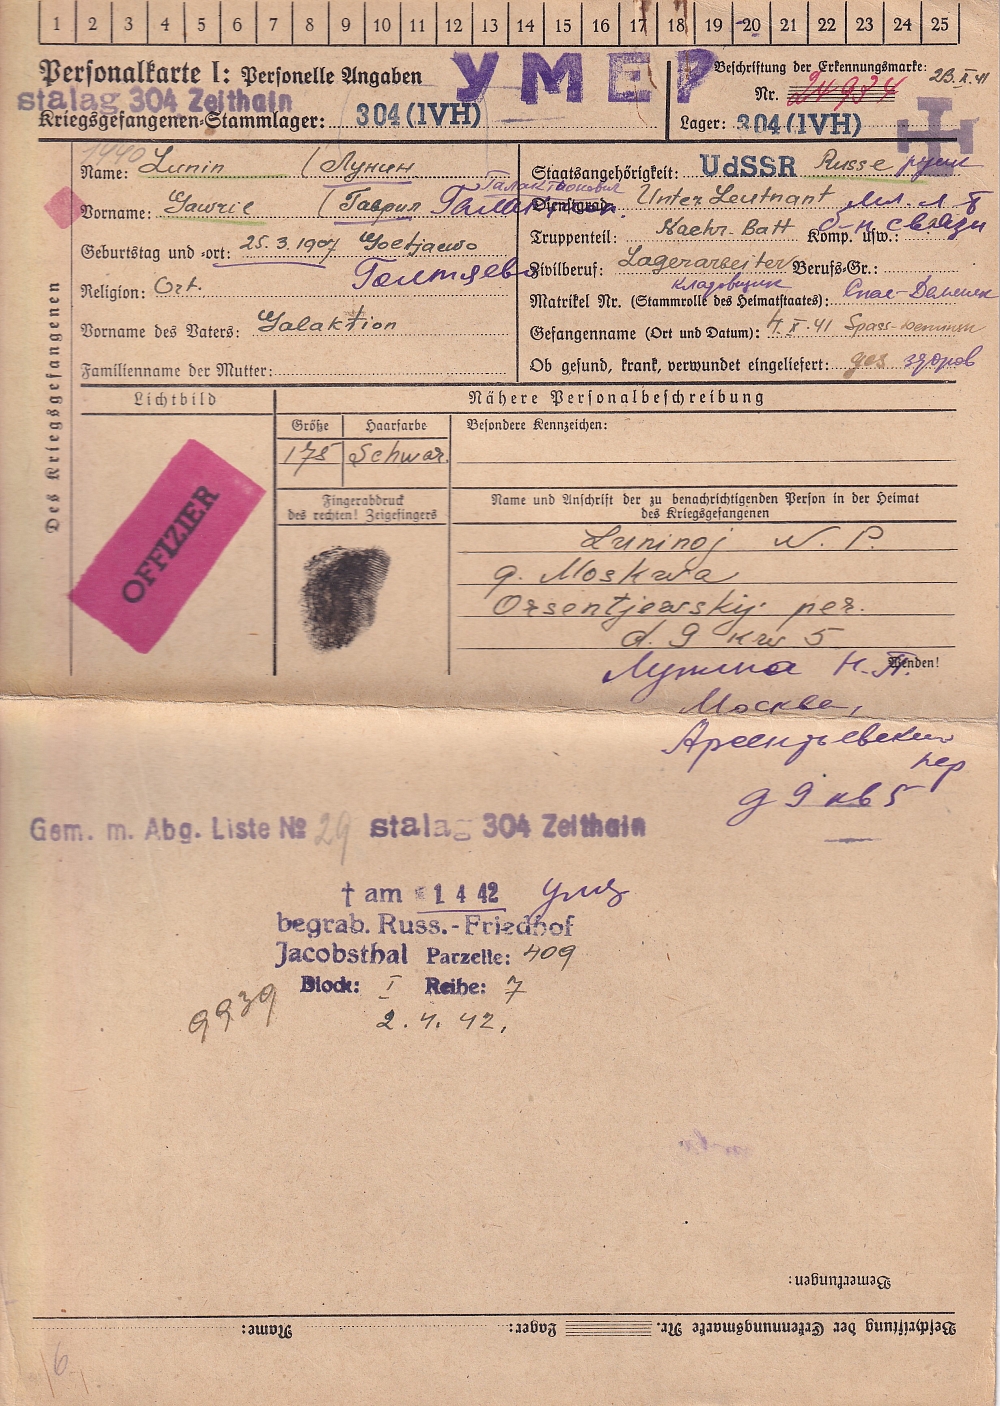 1 2 3 4 5 6 7 8 9 10 11 12 13 14 15 16 17 18 19 20 21 22 23 24 25
Personalkarte I: Personelle Angaben
УМЕР
Beschriftung der Erkennungsmarke:
23.X.41
stalag 304 Zeithain
Nr. 24934
Kriegsgefangenen-Stammlager: 304 (IVH)
Lager: 304 (IVH)
Des Kriegsgefangenen
1940
Name: Lunin / Лунин
Галактионович
Vorname: Gawril / Гаврил
Geburtstag und -ort: 25.3.1907 Goltjaewo
Голтяево
Religion: Ort.
Vorname des Vaters: Galaktion
Familienname der Mutter:
Staatsangehörigkeit: UdSSR Russe русск
Dienstgrad: Unter Leutnant мл. л-т
Truppenteil: Komp. usw.: б-н связи
Zivilberuf: Lagerarbeiter Berufs-Gr.:
кладовщик
Matrikel Nr. (Stammrolle des Heimatstaates): Спас-Деменск
Gefangenname (Ort und Datum): X.41 Spass-Demensk
Ob gesund, krank, verwundet eingeliefert: ges здоров
Lichtbild
OFFIZIER
Nähere Personalbeschreibung
Größe Haarfarbe Besondere Kennzeichen:
175 Schwar.
Fingerabdruck
des rechten! Zeigefingers
Name und Anschrift der zu benachrichtigenden Person in der Heimat
des Kriegsgefangenen
Luninoj N. P.
g. Moskwa
Orsentjewskij per.
d. 9 kw 5
Wenden!
Лунина Н.П.
Москва,
Арсентьевский
пер
д 9 кв 5
Gem. m. Abg. Liste № 29 stalag 304 Zeithain
† am 1 4 42 умер
begrab. Russ.-Friedhof
Jacobsthal Parzelle: 409
Block: I Reihe: 7
9939
2. 4. 42.
Bemerkungen:
Beschriftung der Erkennungsmarke Nr. Lager: Name: